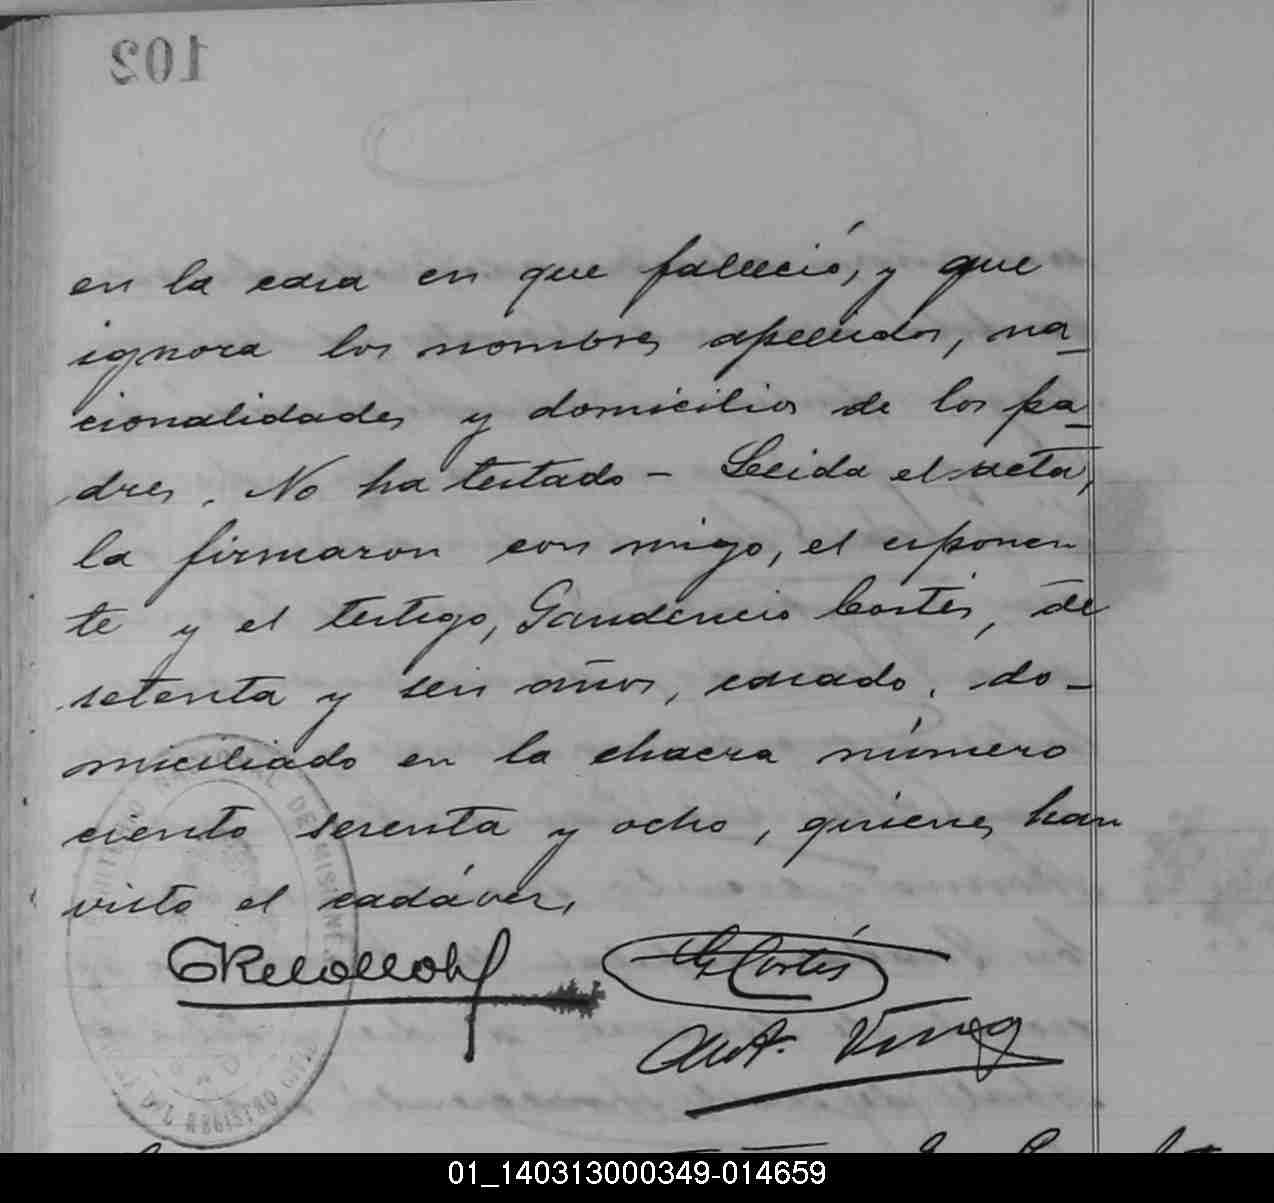 102
en la casa en que falleció, y que
ignora los nombres apellidos, na_
cionalidades y domicilios de los pa_
dres. No ha testado - Leida el acta,
la firmaron con migo, el exponen
te y el testigo, Gaudencio Cortés, de
setenta y seis años, casado, do-
miciliado en la chacra número
ciento sesenta y ocho, quienes han
visto el cadáver.
G Cortés
DE MISIONES
DEL REGISTRO CIVIL
01_140313000349-014659